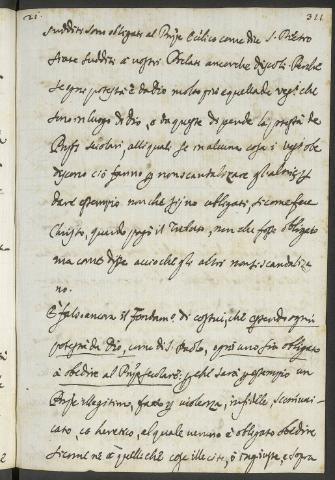 21. 311
sudditi sono obligati al Prṅpe Civile come dice S. Pietro
state sudditi à vostri Prelati ancorche discoli. Perche
se ogni potestà è da Dio molto più quella de Vesc.vi che
sono in luogo di Dio, e da queste dipende la potestà de
Prṅpi secolari, alli quali se in alcune cose i Vesc.vi obe
discono ciò fanno p non scandalizare gl'altri, et
dare essempio non che sijno obligati, si come fece
Christo, quando pagò il Tributo, non che fosse obligato
ma come disse acciò che gli altri non si scandaliza
no.
È falso ancora il fondam.to di costui, che essendo ogni
potestà da Dio, come dice S. Paolo, ogni uno sia obligato
à obedire al Prṅpe secolare: p che sarà p essempio un
Prṅpe illegitimo, fatto p violenza, infidele, scomuni-
cato, ò heretico, al quale niuno è obligato obedire
si come ne à quelli che cose illecite, ò ingiuste, e sopra